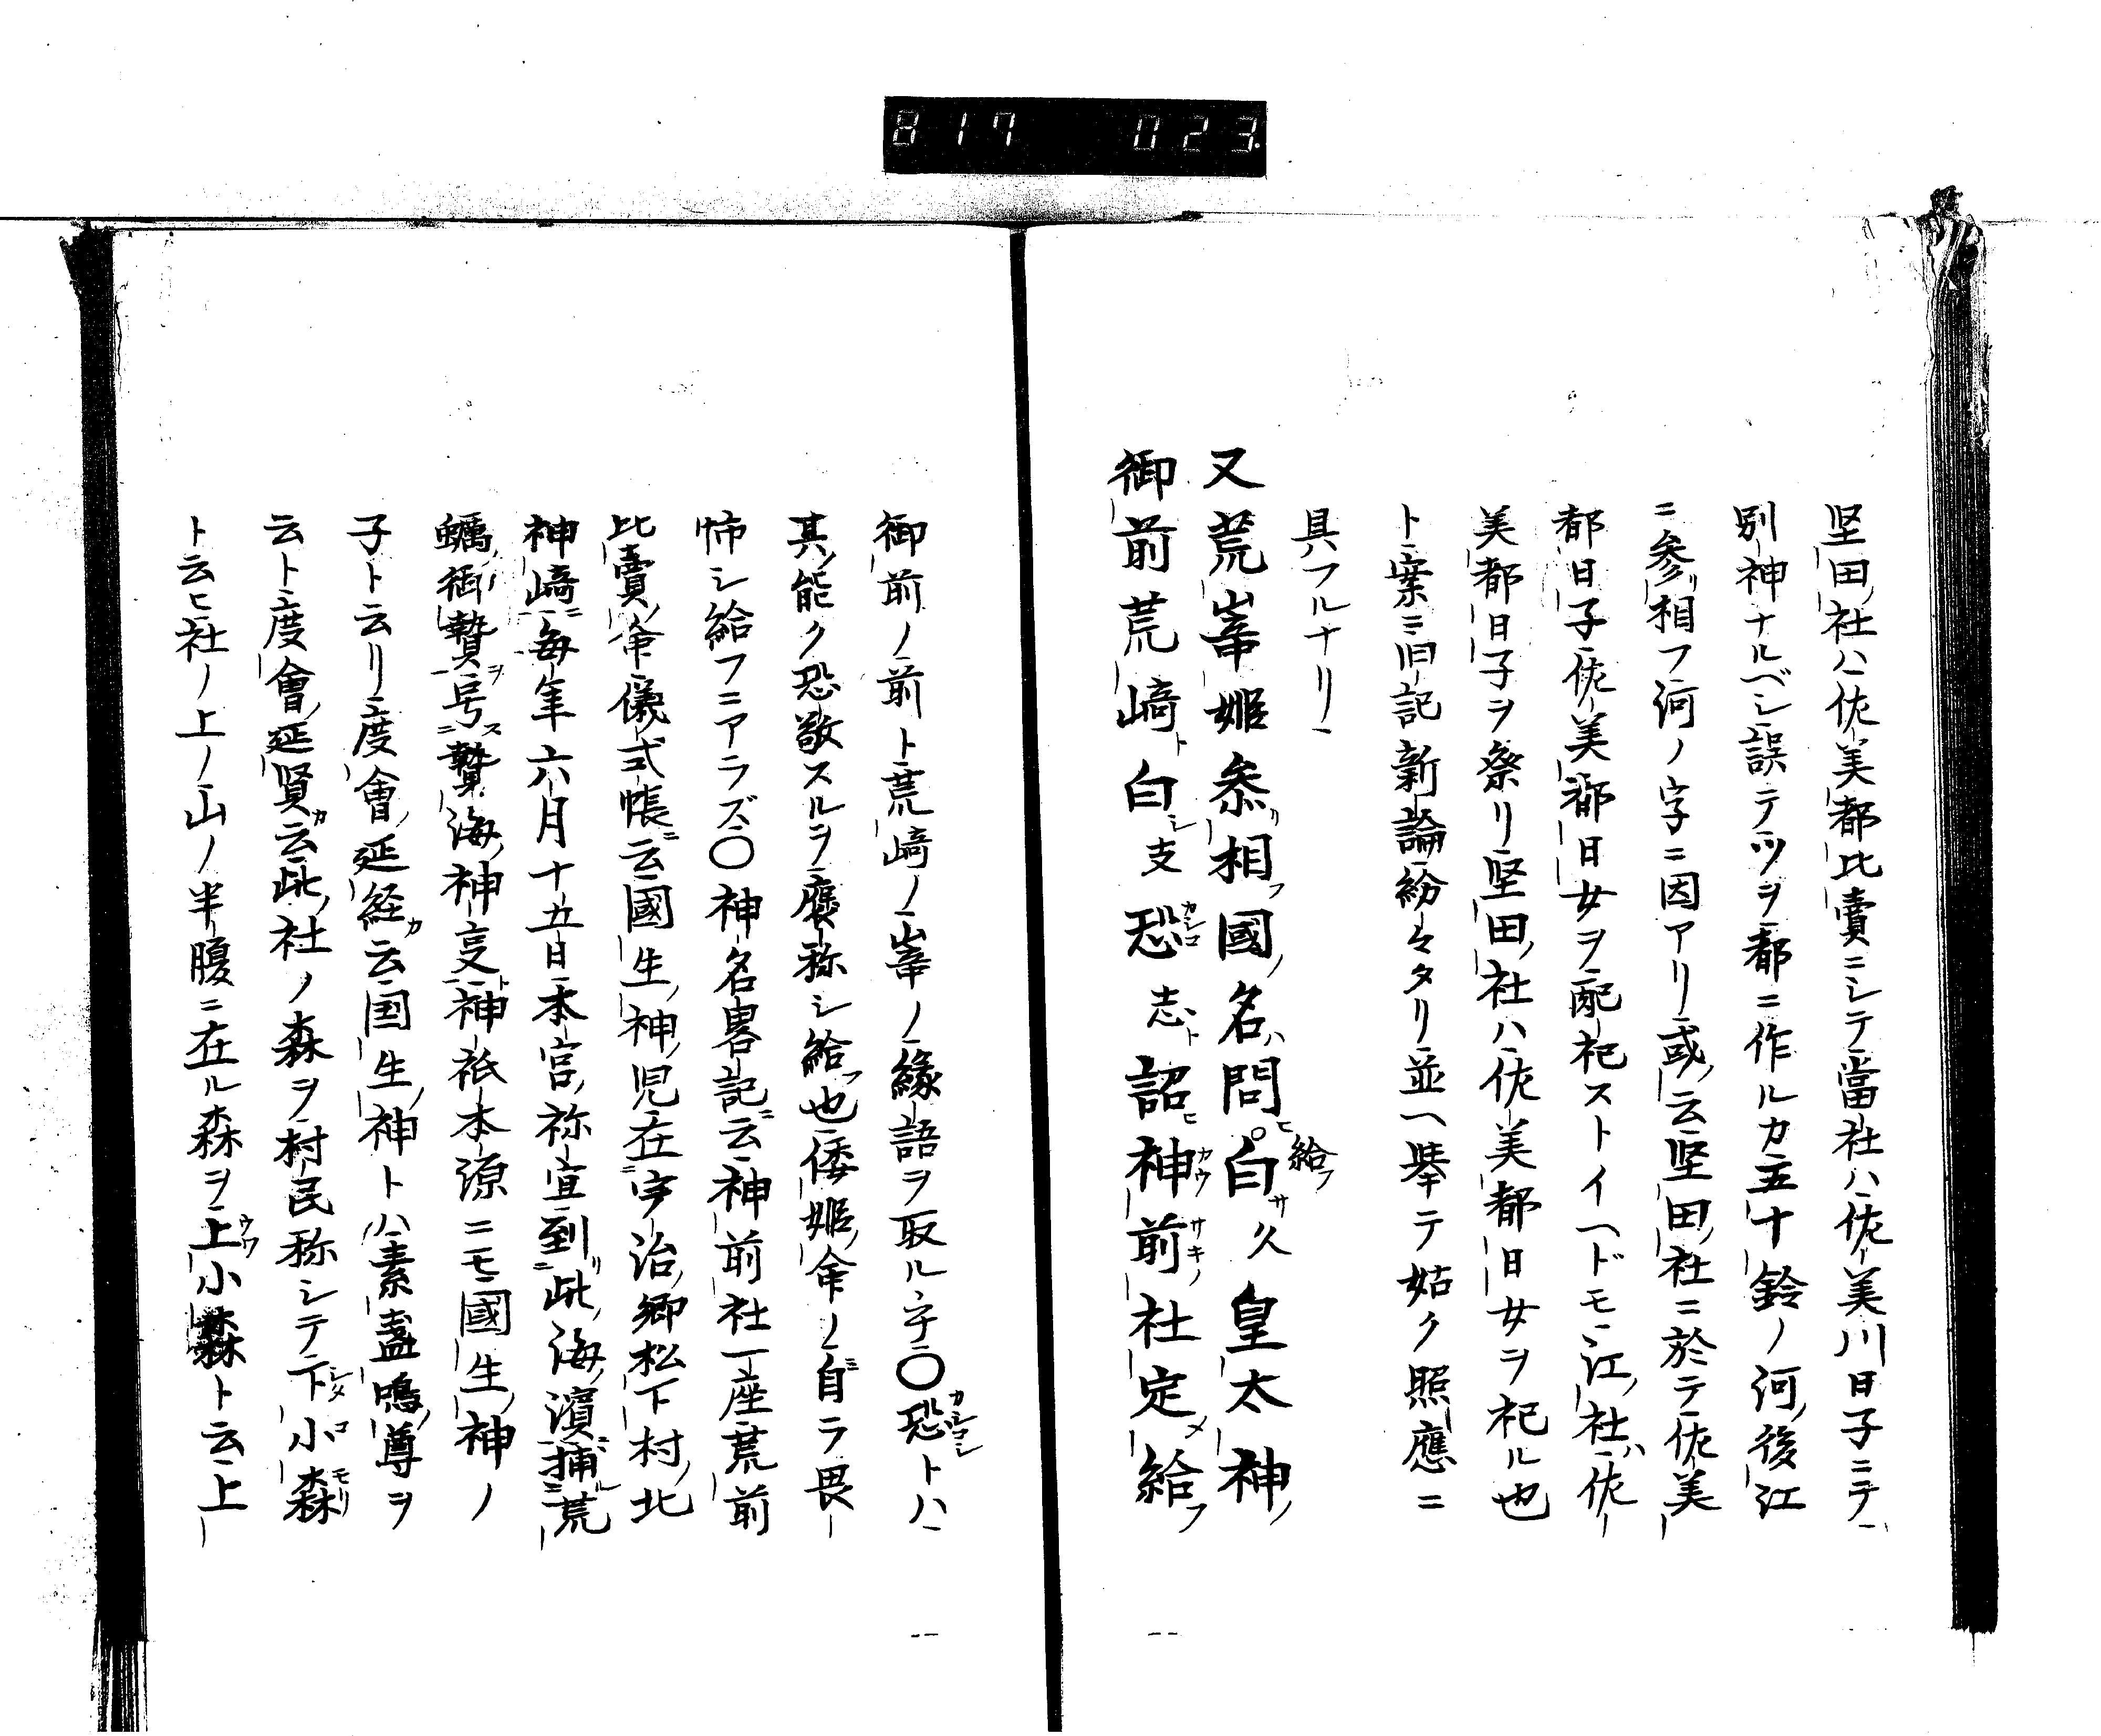 817 023
堅田ノ社ハ佐美都比賣ニシテ當社ハ佐美川日子ニテ
別神ナルベシ誤テツヲ都ニ作ルカ五十鈴ノ河ノ後江
ニ參リ相フ河ノ字ニ因アリ或ハ云堅田ノ社ニ於テ佐美
都日子佐美都日女ヲ配祀ストイヘドモ江ノ社ハ佐
美都日子ヲ祭リ堅田ノ社ハ佐美都日女ヲ祀ル也
ト案ニ旧記新論紛々タリ並ヘ擧テ姑ク照應ニ
具フルナリ
又荒崒姫參リ相フ國ノ名ハ問ヒ給フ白サク皇太神ノ
御前荒崎ト白シ支恐カシコ志ト詔ヒ神カウ前サキノ社定メ給フ
御前ノ前ト荒崎ノ崒ノ縁語ヲ取ル字〇恐カシコシトハ
其ノ能ク恐敬スルヲ褒称シ給フ也倭姫ノ命ノ自ミラ畏
怖シ給フニアラズ〇神名畧記ニ云神前社一座荒前
比賣ノ命儀式帳ニ云國生ノ神ノ児在宇治ノ郷松下村ノ北
神崎ニ每年六月十五日本宮ノ祢宜到リ此ノ海ノ濱ニ捕ル荒
蠣ノ御贄ヲ号ス贄ノ海ノ神ト亨神祇本源ニモ國生ノ神ノ
子ト云リ度會ノ延経カ云国生ノ神トハ素盞嗚ノ尊ヲ
云ト度會ノ延賢カ云此ノ社ノ森ヲ村民称シテ下シタ小コ森モリ
ト云ヒ社ノ上ノ山ノ半腹ニ在ル森ヲ上ウワ小森ト云上